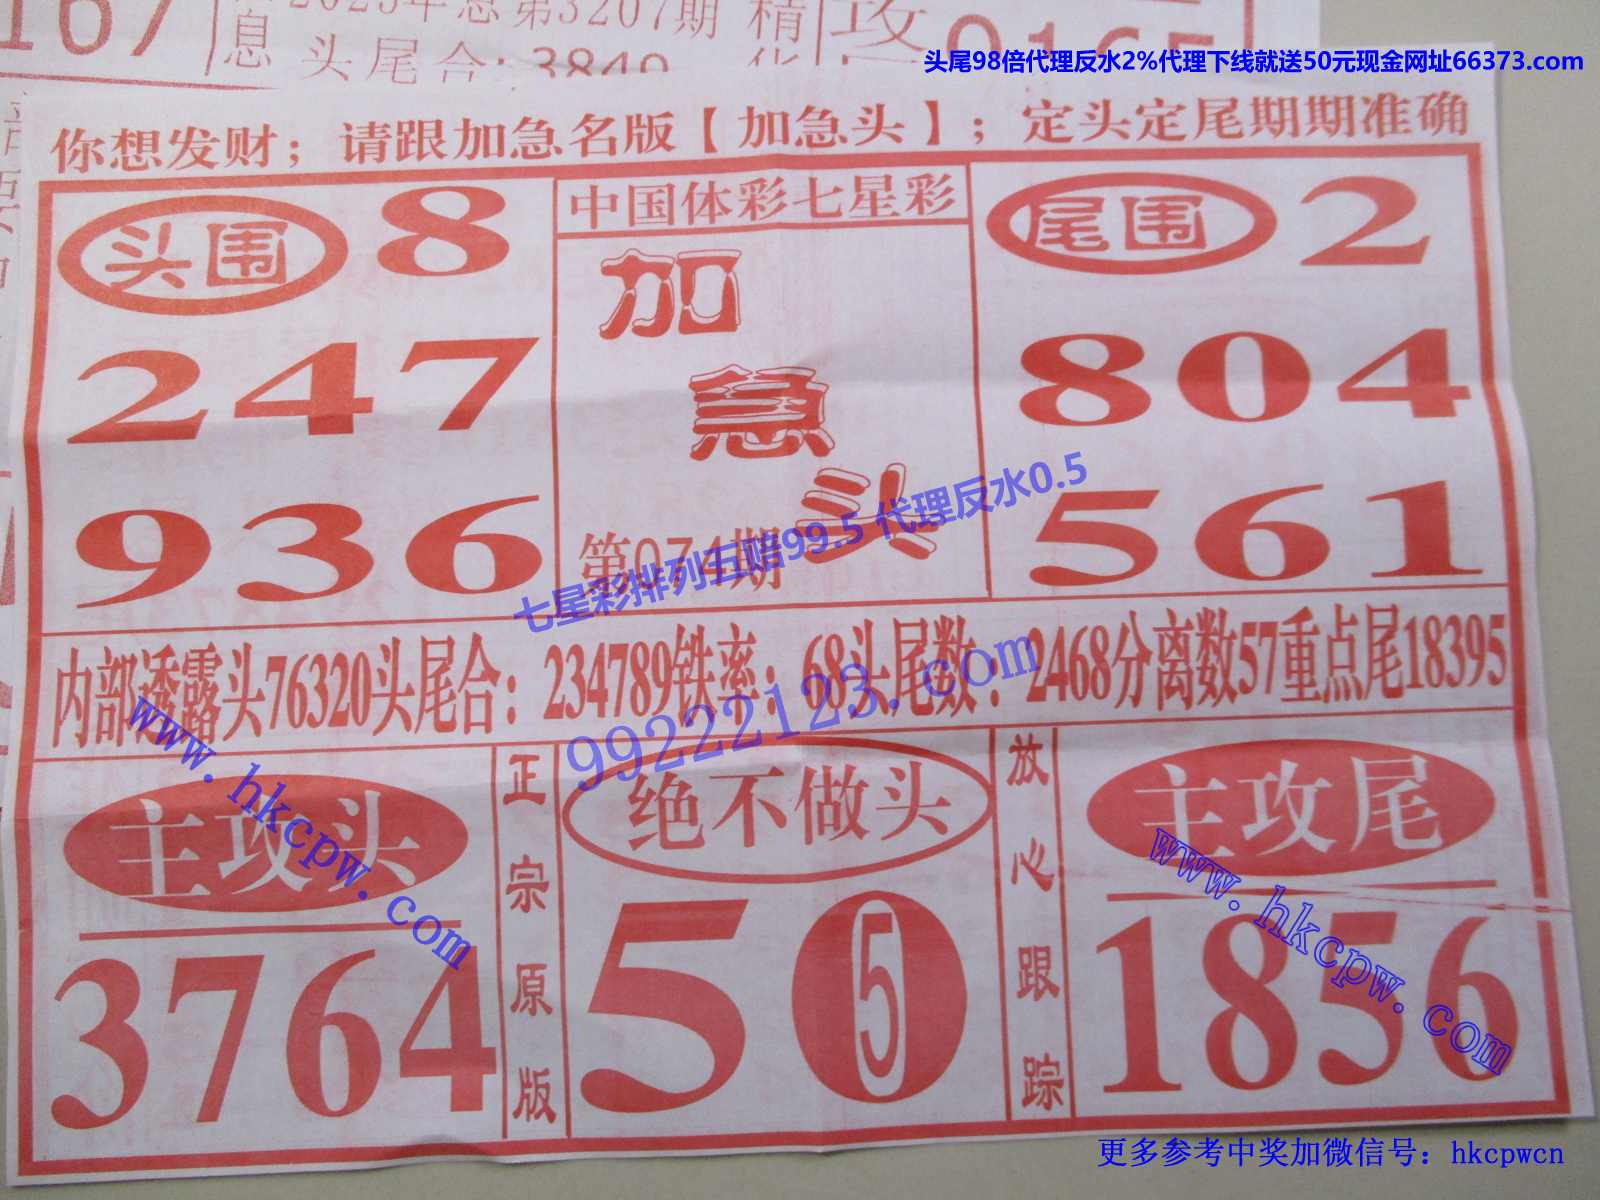 167
息
2025年总第3207期
精
攻
头尾合:3849
头尾98倍代理反水2%代理下线就送50元现金网址66373.com
你想发财；请跟加急名版【加急头】；定头定尾期期准确
头围 8
247
936
中国体彩七星彩
加急头
第074期
尾围 2
804
561
七星彩排列五赔99.5 代理反水0.5
内部透露头76320头尾合：234789铁率：68头尾数：2468分离数57重点尾18395
99222123.com
www.hkcpw.com
主攻头
3764
正宗原版
绝不做头
50
5
放心跟踪
主攻尾
1856
www.hkcpw.com
更多参考中奖加微信号：hkcpwcn